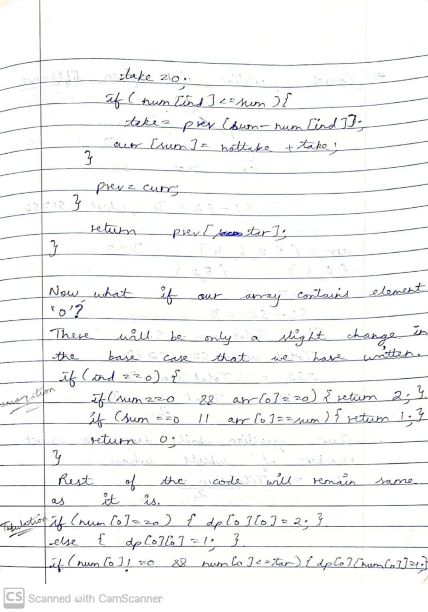 take = 0;
if ( num [ind] <= sum ) {
take = prev [sum - num [ind]];
curr [sum] = nottake + take;
}
prev = curr;
}
return prev [ tar];
}
Now what if our array contains element
'0'?
There will be only a slight change in
the base case that we have written.
if (ind == 0) {
if (sum == 0 && arr [0] == 0) { return 2; }
if (sum == 0 || arr [0] == sum) { return 1; }
return 0;
}
Rest of the code will remain same
as it is.
Tabulation
if (num [0] == 0) { dp [0] [0] = 2; }
else { dp [0] [0] = 1; }
if (num [0] != 0 && num [0] <= tar) { dp [0] [num [0]] = 1; }
CS Scanned with CamScanner